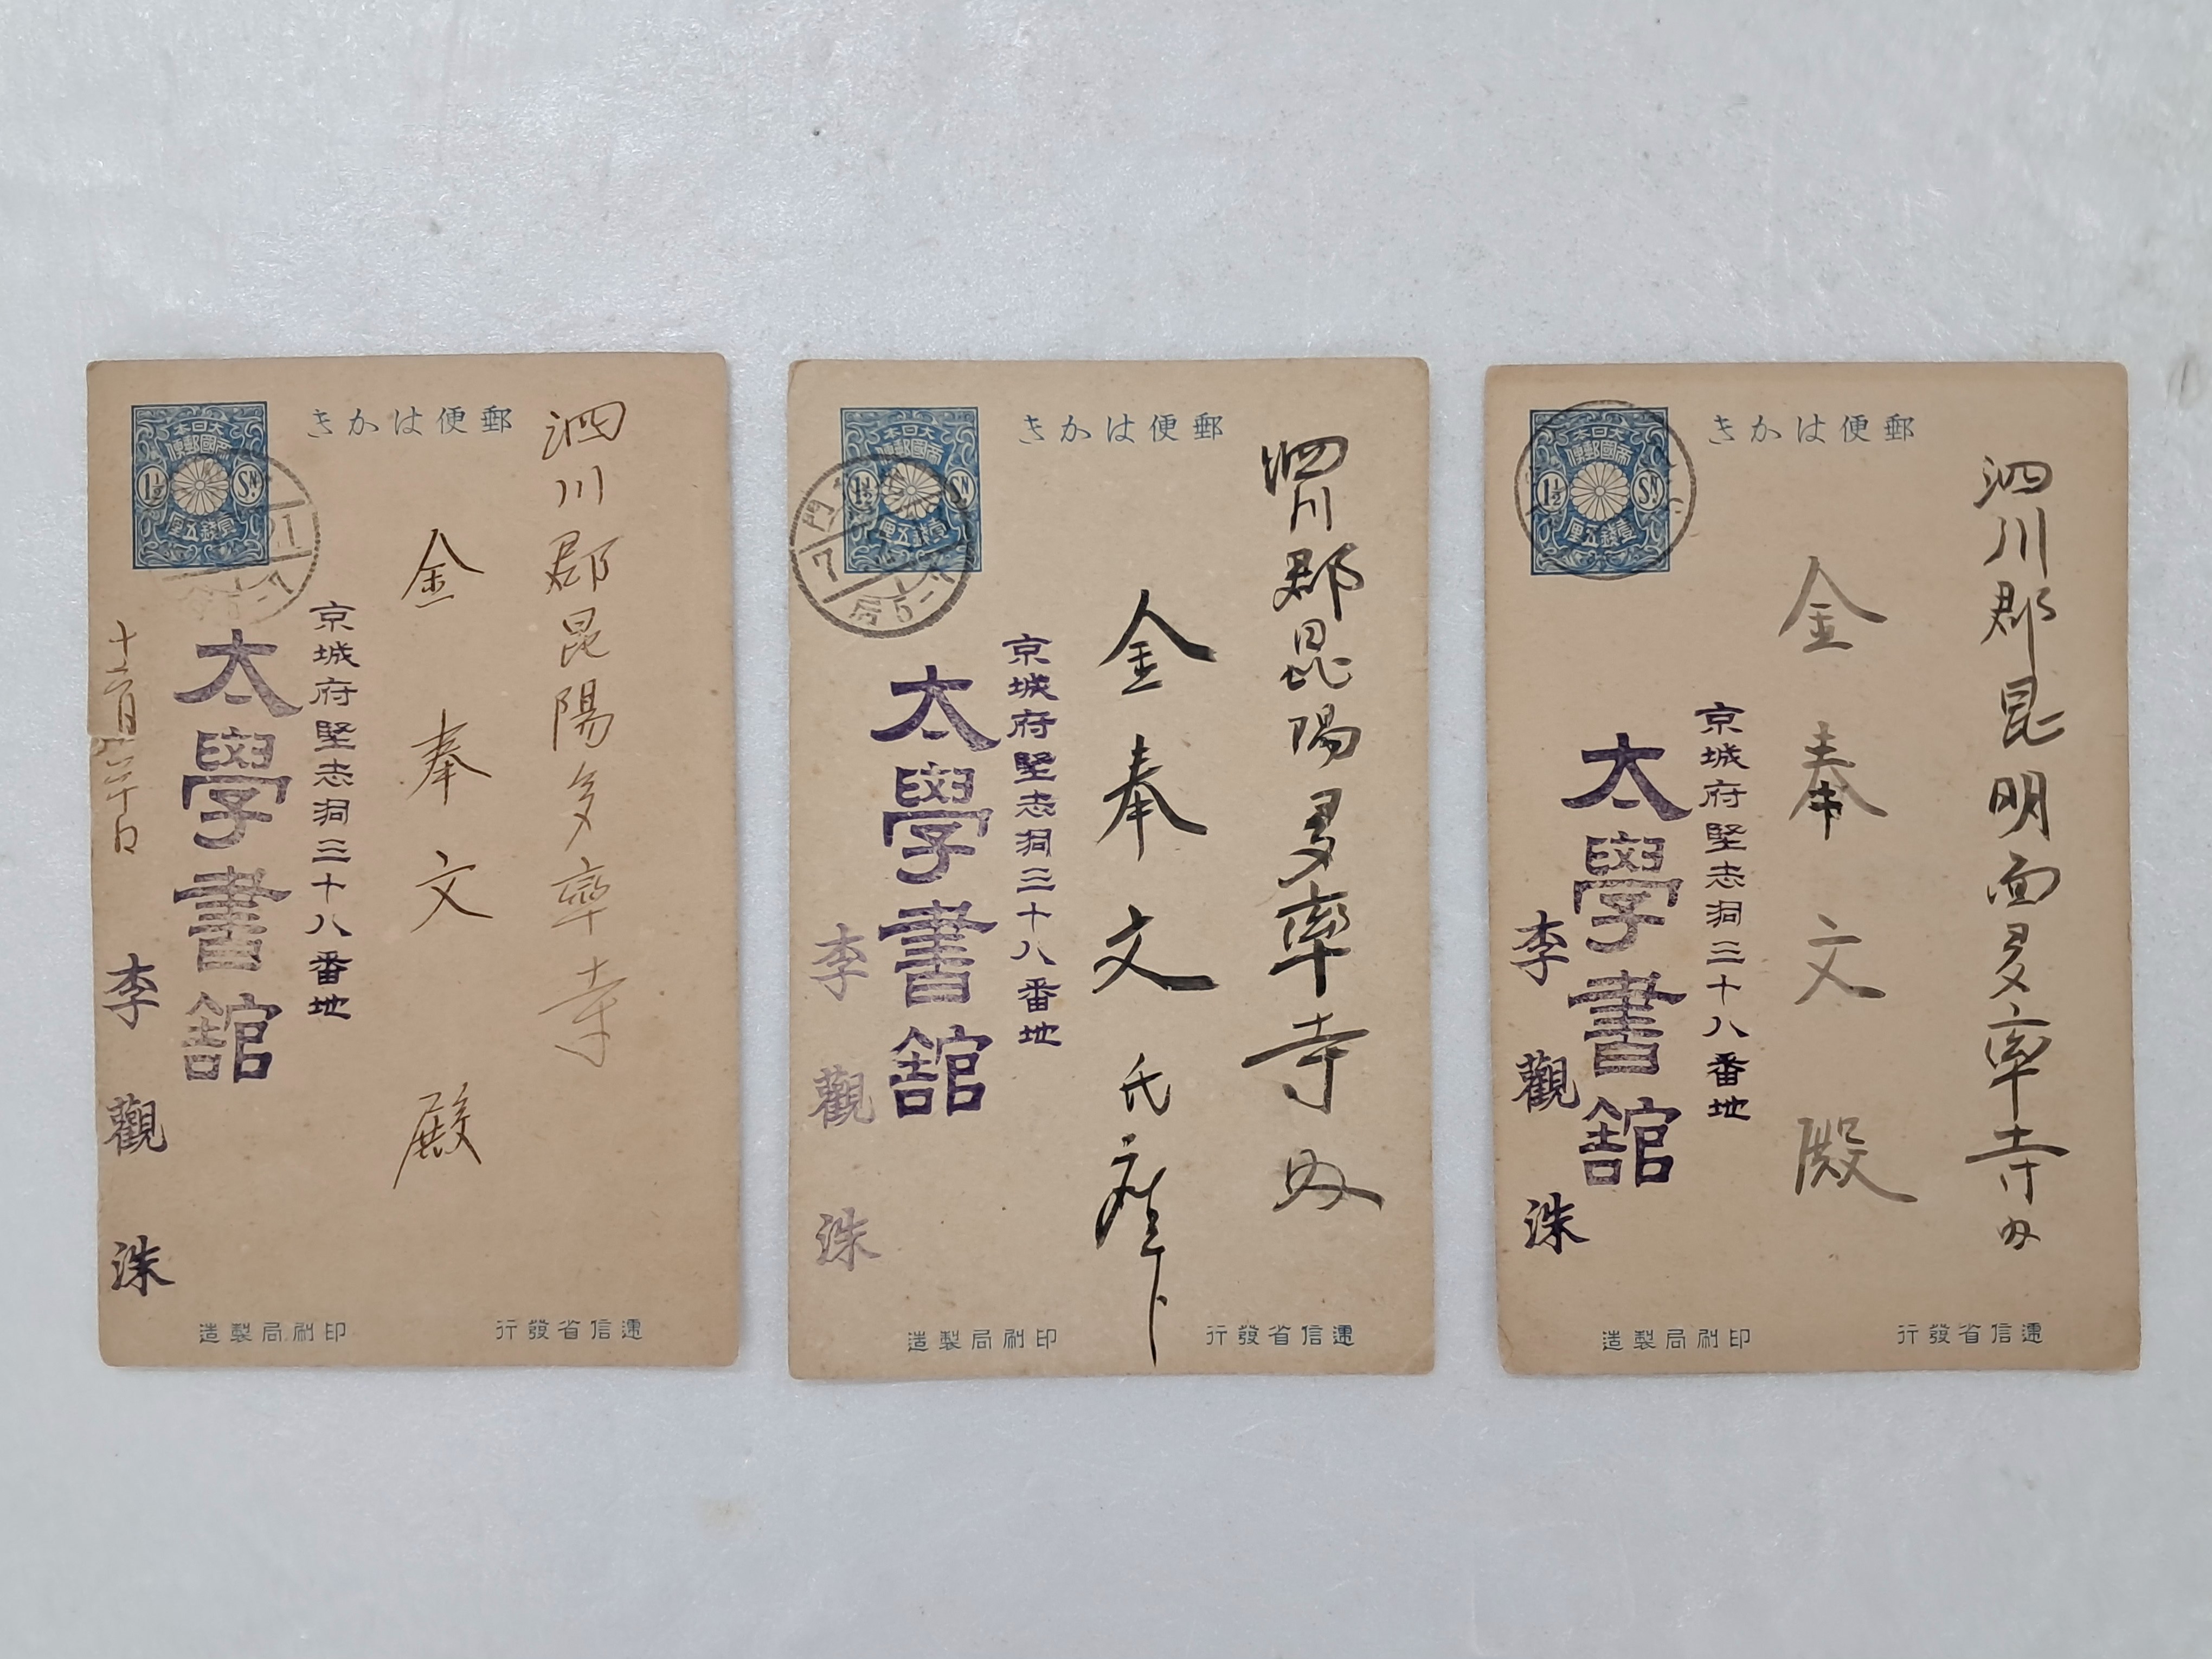 郵便はかき
大日本
帝國郵便
1½ SN.
壹錢五厘
泗川郡昆陽多率寺
金奉文殿
京城府堅志洞三十八番地
太學書舘
李觀洙
遞信省發行
印刷局製造
郵便はかき
大日本
帝國郵便
1½ SN.
壹錢五厘
7
泗川郡昆陽多率寺内
金奉文氏座下
京城府堅志洞三十八番地
太學書舘
李觀洙
遞信省發行
印刷局製造
郵便はかき
大日本
帝國郵便
1½ SN.
壹錢五厘
泗川郡昆明面多率寺内
金奉文殿
京城府堅志洞三十八番地
太學書舘
李觀洙
遞信省發行
印刷局製造